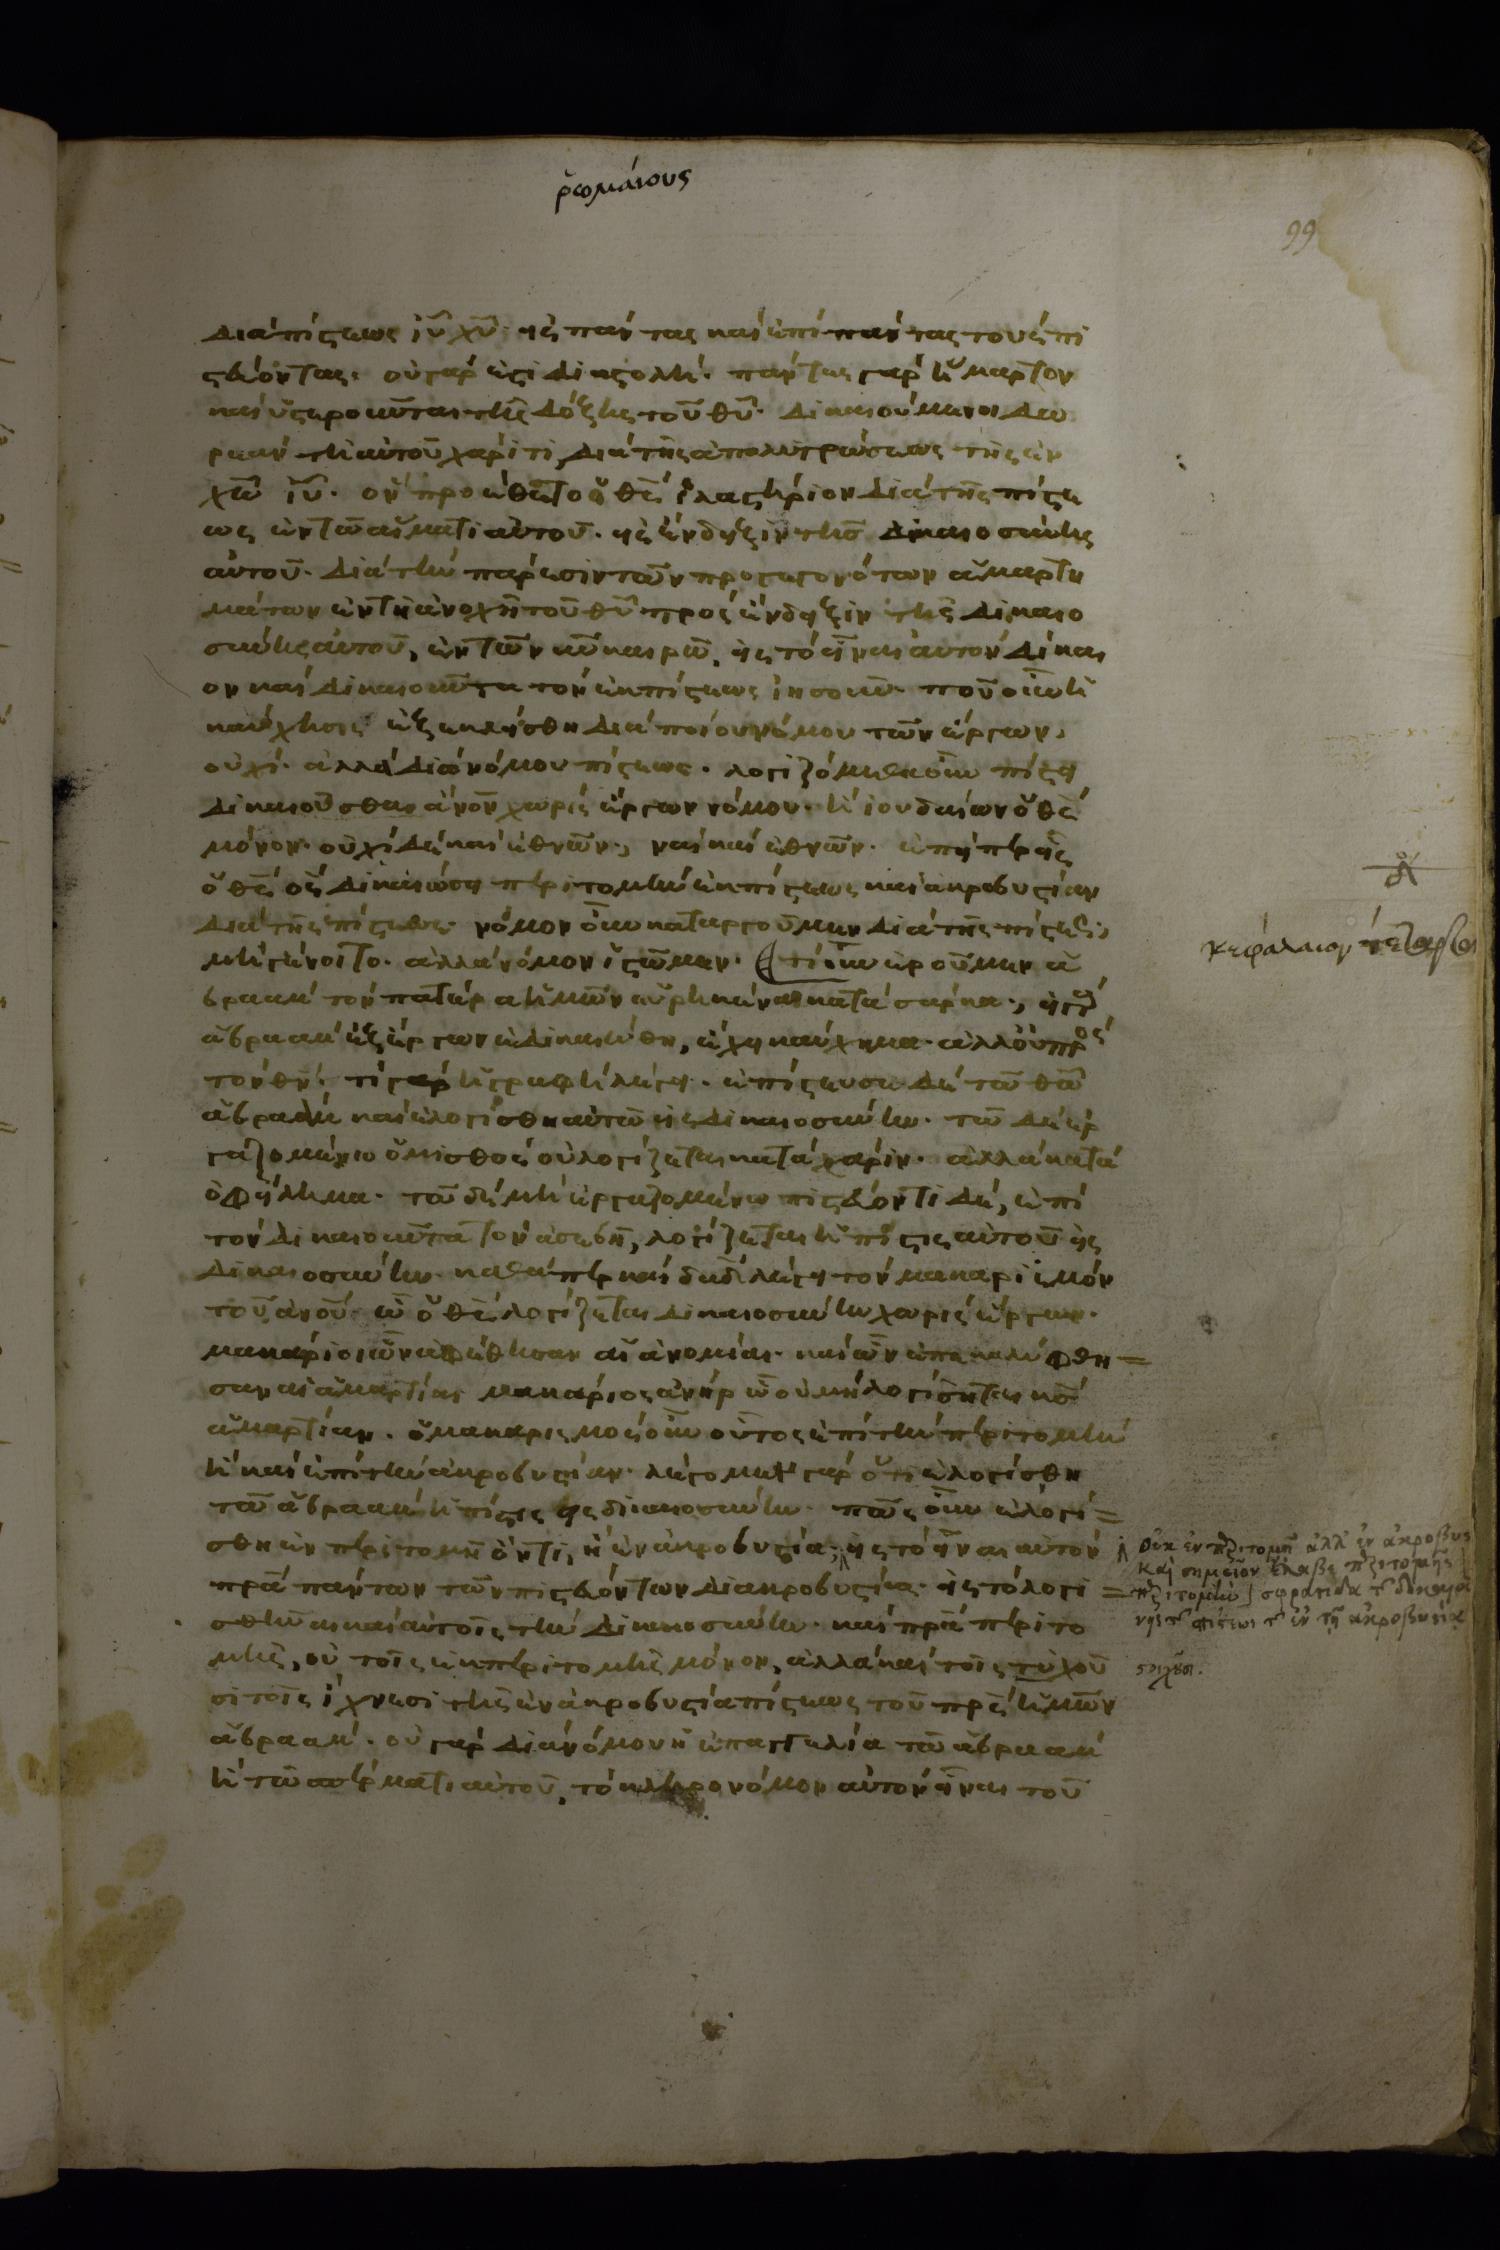 ῥωμαίους
99
διαπίστεως ἰῦ χῦ· εἰς πάντας καὶ ἐπὶ πάντας τοὺς πι
στεύοντας· οὐ γάρ ἐστι διαστολή· πάντες γὰρ ἥμαρτον
καὶ ὑστεροῦνται τῆς δόξης τοῦ θῦ· δικαιούμενοι δω
ρεὰν τῆ αὐτοῦ χάριτι, διὰ τῆς ἀπολυτρώσεως τῆς ἐν
χῶ ἰῦ· ὃν προέθετο ὁ θς ἱλαστήριον διὰ τῆς πίστε
ως ἐν τῶ αἵματι αὐτοῦ· εἰς ἔνδειξιν τῆς δικαιοσύνης
αὐτοῦ· διὰ τὴν πάρεσιν τῶν προγεγονότων ἁμαρτη
μάτων ἐν τῆ ἀνοχῆ τοῦ θῦ πρὸς ἔνδειξιν τῆς δικαιο
σύνης αὐτοῦ, ἐν τῶ νῦν καιρῶ, εἰς τὸ εἶναι αὐτὸν δίκαι
ον καὶ δικαιοῦντα τὸν ἐκ πίστεως ἰησοῦ· ποῦ οὖν ἡ
καύχησις ἐξεκλείσθη διὰ ποίου νόμου τῶν ἔργων,
οὐχί· ἀλλὰ διὰ νόμου πίστεως· λογιζόμεθα οὖν πίστει
δικαιοῦσθαι ἄνον χωρὶς ἔργων νόμου· ἢ ἰουδαίων ὁ θς
μόνον· οὐχὶ δὲ καὶ ἐθνῶν, ναὶ καὶ ἐθνῶν· ἐπείπερ εἷς
ὁ θς ὃς δικαιώσει περιτομὴν ἐκ πίστεως καὶ ἀκροβυστίαν
διὰ τῆς πίστεως· νόμον οὖν καταργοῦμεν διὰ τῆς πίστεως;
μὴ γένοιτο· ἀλλὰ νόμον ἱστῶμεν· τί οὖν ἐροῦμεν ἀ
βραὰμ τὸν πατέρα ἡμῶν εὑρηκέναι κατὰ σάρκα; εἰ γὰρ
ἀβραὰμ ἐξ ἔργων ἐδικαιώθη, ἔχει καύχημα· ἀλλ' οὐ πρὸς
τὸν θν· τί γὰρ ἡ γραφὴ λέγει· ἐπίστευσε δὲ τῶ θῶ
ἀβραὰμ καὶ ἐλογίσθη αὐτῶ εἰς δικαιοσύνην· τῶ δὲ ἐρ
γαζομένω ὁ μισθὸς οὐ λογίζεται κατὰ χάριν· ἀλλὰ κατὰ
ὀφείλημα· τῶ δὲ μὴ ἐργαζομένω πιστεύοντι δὲ, ἐπὶ
τὸν δικαιοῦντα τὸν ἀσεβῆ, λογίζεται ἡ πίστις αὐτοῦ εἰς
δικαιοσύνην· καθάπερ καὶ δαδ λέγει τὸν μακαρισμὸν
τοῦ ἀνοῦ· ὧ ὁ θς λογίζεται δικαιοσύνην χωρὶς ἔργων·
μακάριοι ὧν ἀφέθησαν αἱ ἀνομίαι· καὶ ὧν ἐπεκαλύφθη =
σαν αἱ ἁμαρτίαι μακάριος ἀνὴρ ὧ οὐ μὴ λογίσηται κς
ἁμαρτίαν· ὁ μακαρισμὸς οὖν οὗτος ἐπὶ τὴν περιτομὴν
ἢ καὶ ἐπὶ τὴν ἀκροβυστίαν· λέγομεν γὰρ ὅτι ἐλογίσθη
τῶ ἀβραὰμ ἡ πίστις εἰς δικαιοσύνην· πῶς οὖν ἐλογί =
σθη ἐν περιτομῆ ὄντι, ἢ ἐν ἀκροβυστία; εἰς τὸ εἶναι αὐτὸν
πρα πάντων τῶν πιστευόντων δι ἀκροβυστίας· εἰς τὸ λογι =
σθῆναι καὶ αὐτοῖς τὴν δικαιοσύνην· καὶ πρα περιτο
μῆς, οὐ τοῖς ἐκ περιτομῆς μόνον, ἀλλὰ καὶ τοῖς τυχοῦ
σι τοῖς ἴχνεσι τῆς ἐν ἀκροβυστία πίστεως τοῦ πρς ἡμῶν
ἀβραάμ· οὐ γὰρ διὰ νόμου ἡ ἐπαγγελία τῶ ἀβραὰμ
ἢ τῶ σπέρματι αὐτοῦ, τὸ κληρονόμον αὐτὸν εἶναι τοῦ
κεφάλαιον τέταρτον
οὐκ ἐν περιτομῆ ἀλλ' ἐν ἀκροβυς
καὶ σημεῖον ἔλαβε περιτομῆς
περιτομὴν σφραγίδα τ δικαιοσύ
νης τ πίστεως τ ἐν τῆ ἀκροβυστία
στοιχοῦσι.